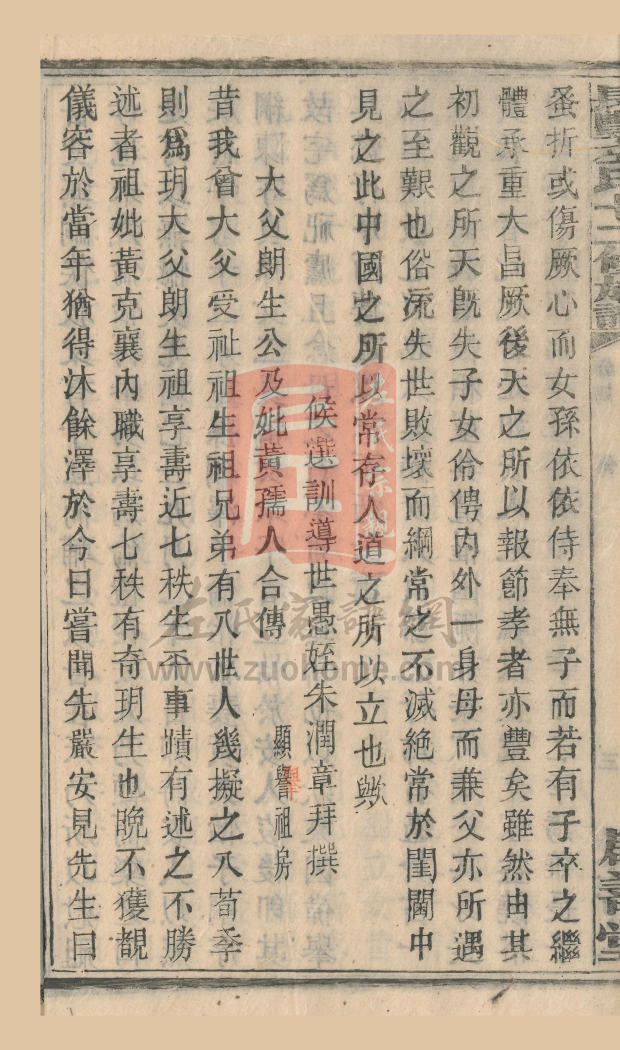 蚤折或傷厥心而女孫依依侍奉無子而若有子卒之繼
體承重大昌厥後天之所以報節孝者亦豐矣雖然由其
初觀之所天旣失子女伶俜內外一身母而兼父亦所遇
之至艱也俗流失世敗壞而綱常之不滅絕常於閨閫中
見之此中國之所以常存人道之所以立也歟
候選訓導世愚姪朱潤章拜撰
大父朗生公及妣黃孺人合傳
顯譽祖房
昔我曾大父受祉祖生祖兄弟有八世人幾擬之八荀季
則爲玥大父朗生祖享壽近七秩生平事蹟有述之不勝
述者祖妣黃克襄內職享壽七秩有奇玥生也晚不獲覩
儀容於當年猶得沐餘澤於今日嘗聞先嚴安見先生曰
左氏家譜網
www.zuohome.com